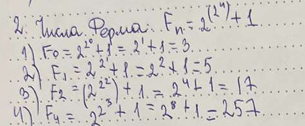 2. Числа Ферма. Fn = 2^(2^n) + 1
1) F0 = 2^2^0 + 1 = 2^1 + 1 = 3
2) F1 = 2^2^1 + 1 = 2^2 + 1 = 5
3) F2 = (2^2^2) + 1 = 2^4 + 1 = 17
4) F4 = 2^2^3 + 1 = 2^8 + 1 = 257